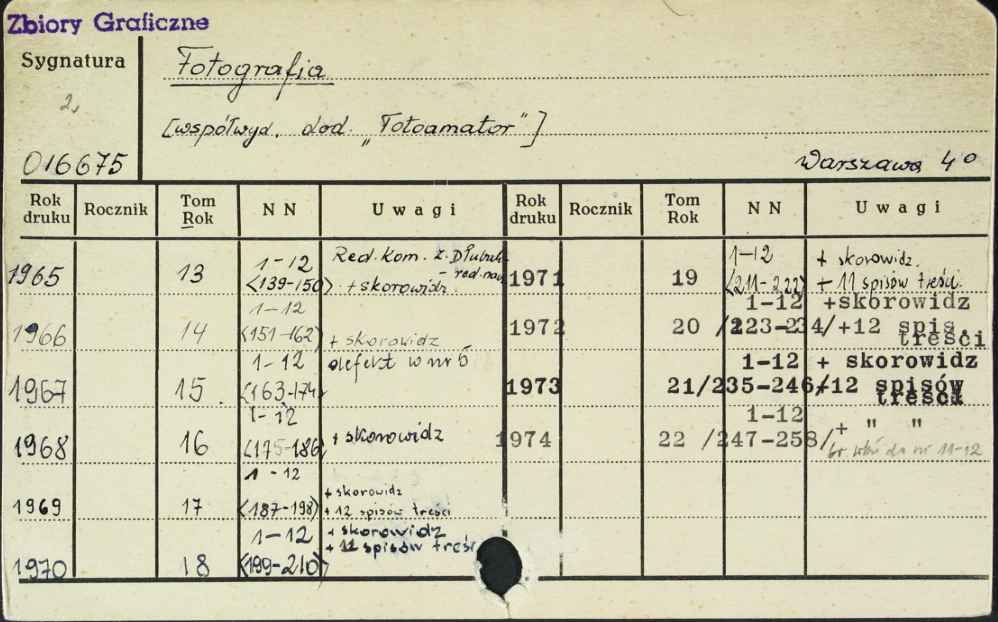 Zbiory Graficzne
Sygnatura
2,
016675
Fotografia
[współwyd. dod. „Fotoamator"]
Warszawa 4°
Rok druku Rocznik Tom Rok N N Uwagi Rok druku Rocznik Tom Rok N N Uwagi
1965 13 1-12 <139-150> Red. Kom. Z. - red. + skorowidz.
1966 14 1-12 <151-162> + skorowidz
1967 15. 1-12 <163-174> defekt w nr 6
1968 16 1-12 <175-186> + skorowidz
1969 17 1-12 <187-198> + skorowidz + 12 spisów treści
1970 18 1-12 <199-210> + skorowidz + 11 spisów treści
1971 19 1-12 <211-222> + skorowidz. + 11 spisów treści.
1972 20 1-12 /223-234/ +skorowidz +12 spis. treści
1973 21 1-12 /235-246/ + skorowidz +12 spisów treści
1974 22 1-12 /247-258/ + " " nr 11-12